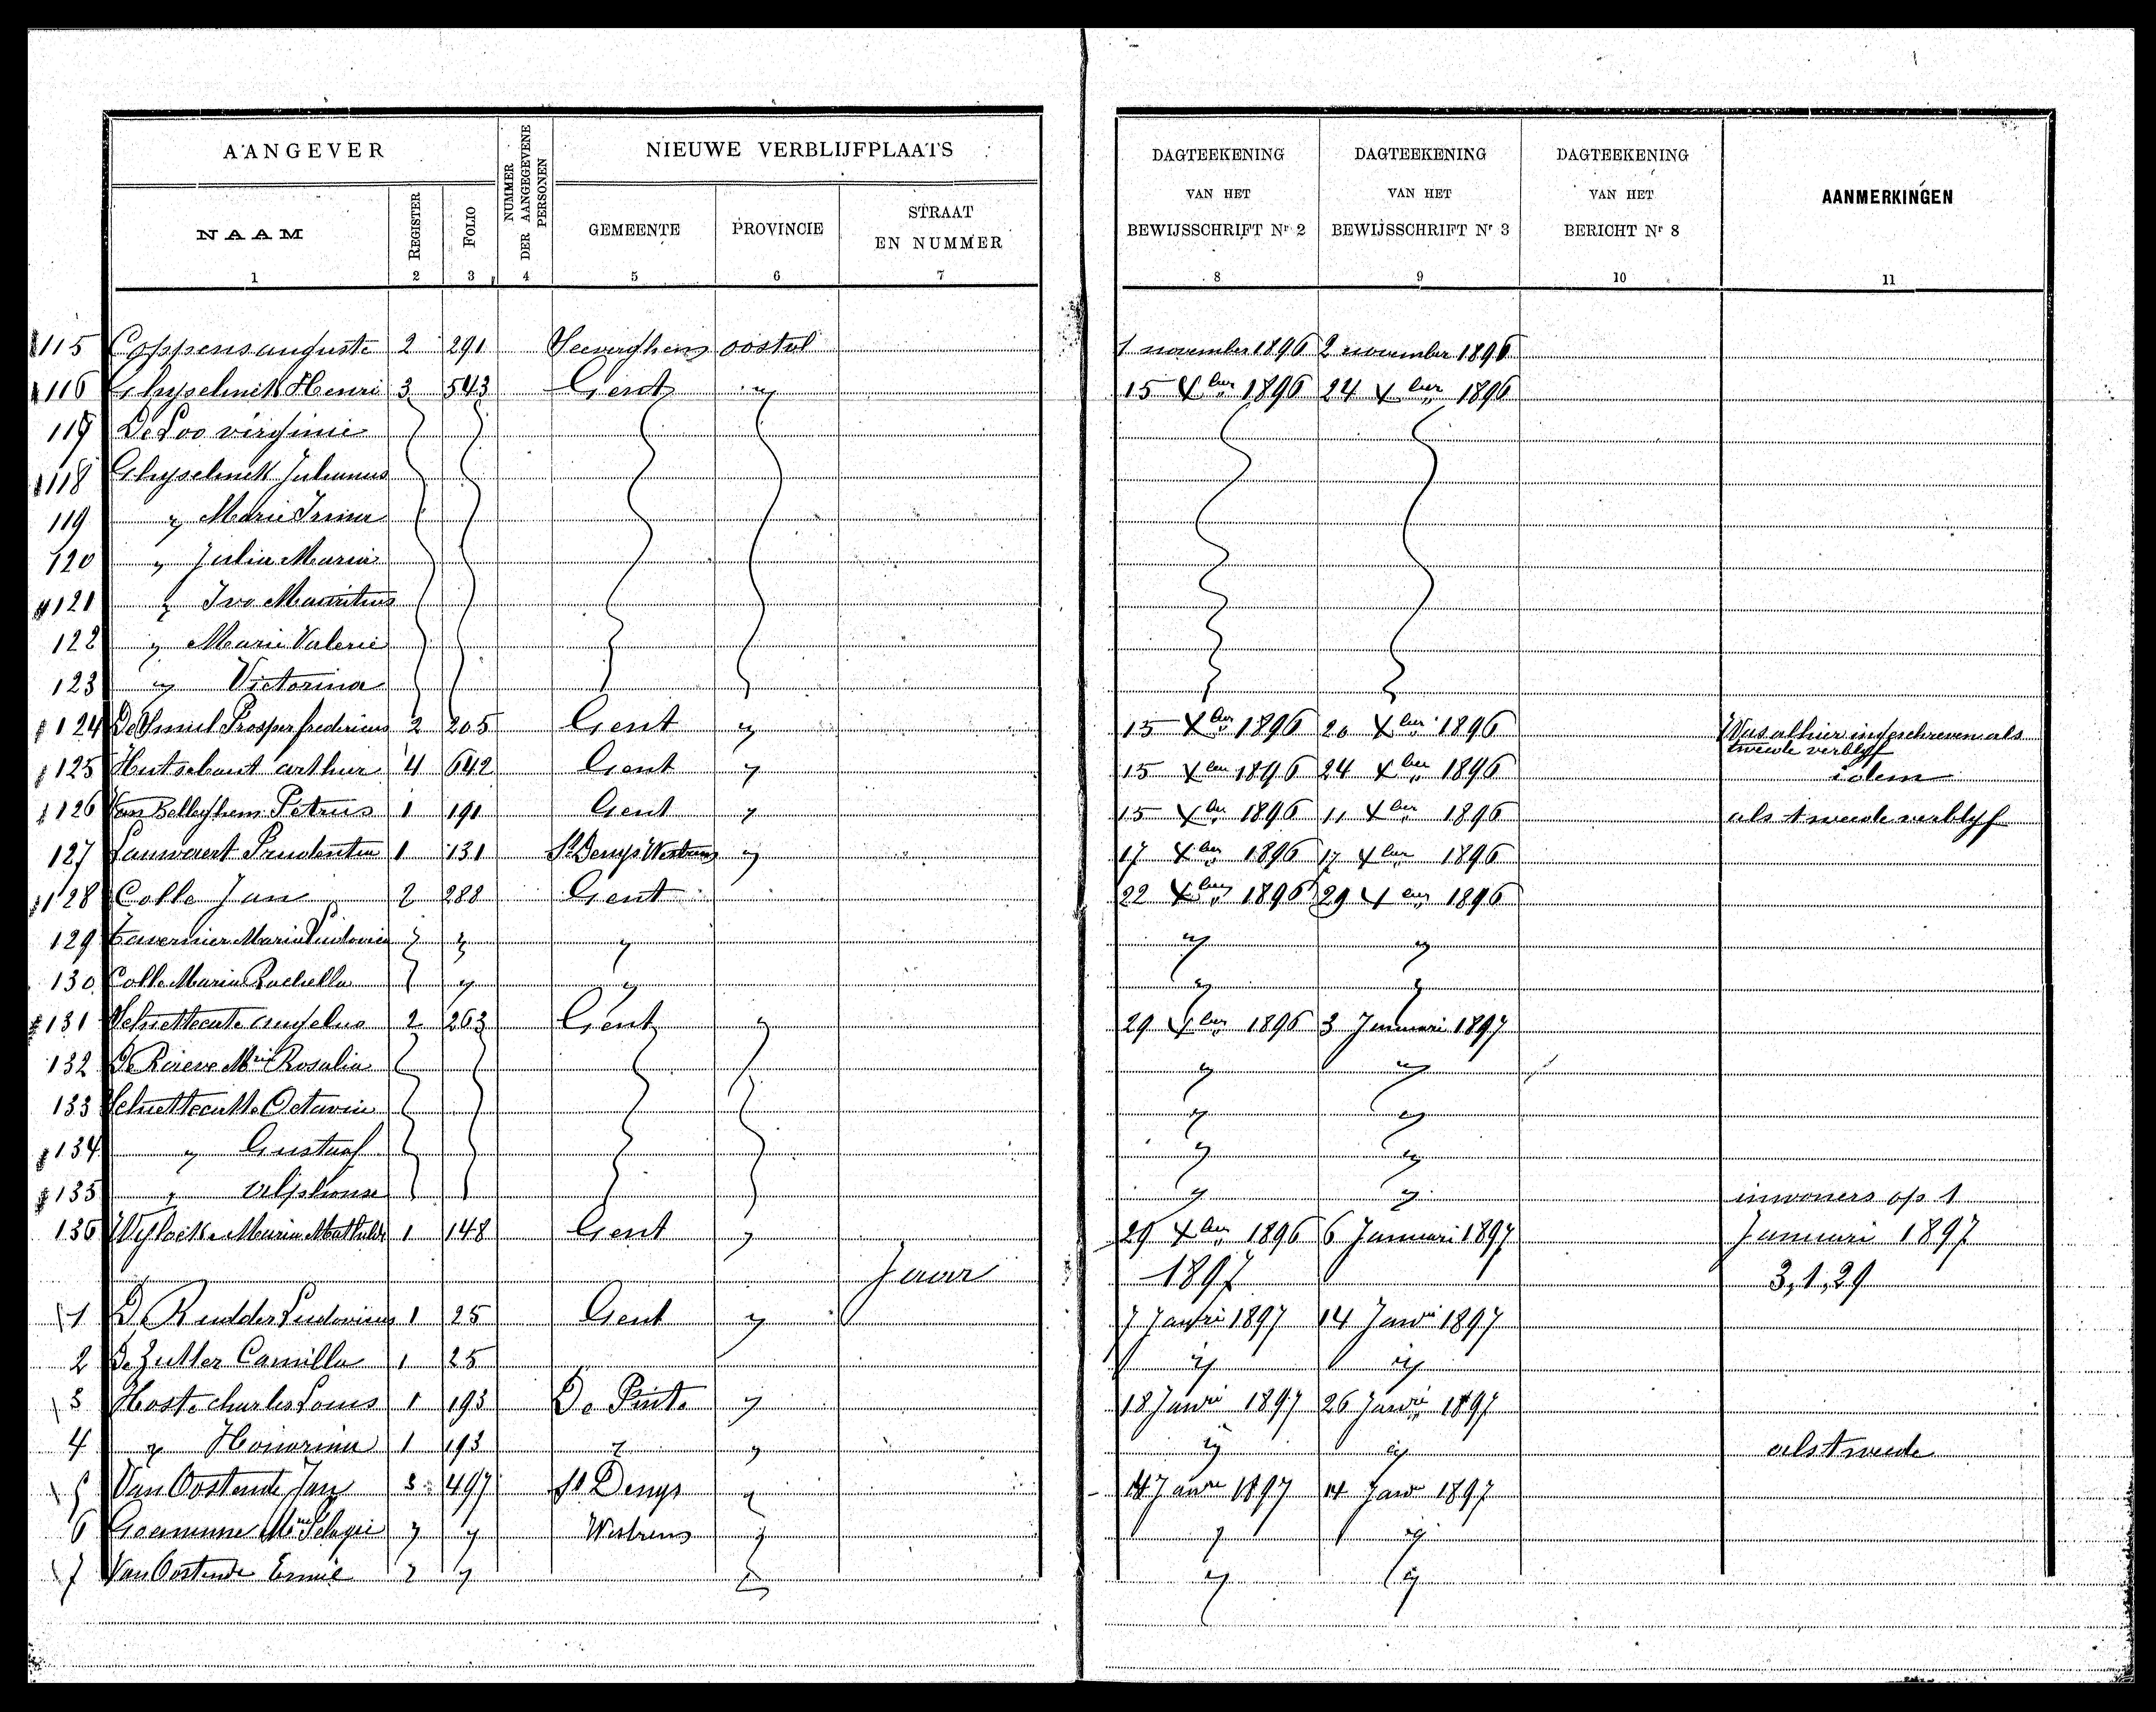 AANGEVER
NUMMER DER AANGEGEVENE PERSONEN
NIEUWE VERBLIJFPLAATS
NAAM
REGISTER
FOLIO
GEMEENTE
PROVINCIE
STRAAT EN NUMMER
DAGTEEKENING VAN HET BEWIJSSCHRIFT Nr 2
DAGTEEKENING VAN HET BEWIJSSCHRIFT Nr 3
DAGTEEKENING VAN HET BERICHT Nr 8
AANMERKINGEN
1 2 3 4 5 6 7 8 9 10 11
115 Coppens auguste 2 291 oostvl 1 november 1896 2 november 1896
116 Ghyselinck Henri 3 543 Gent " 15 Xber 1896 24 Xber 1896
117 De Loo virginie
118 Ghyselinck Julianus
119 " Marie Irma
120 " Julia Maria
121 " Ivo Mauritius
122 " Marie Valerie
123 " Victorina
124 Prosper fredericus 2 205 Gent " 15 Xber 1896 20 Xber 1896 Was alhier ingeschreven als tweede verblyf
125 Hutsebaut arthur 4 642 Gent " 15 Xber 1896 24 Xber 1896 idem
126 Van Belleghem Petrus 1 191 Gent " 15 Xber 1896 11 Xber 1896 als tweede verblyf
127 Lauwaert Prudentia 1 131 St Denys Westrem " 17 Xber 1896 17 Xber 1896
128 Colle Jan 2 288 Gent 22 Xber 1896 29 Xber 1896
129 Tavernier Maria Ludovica " " " " "
130 Colle Maria Rachella " " " "
131 2 263 Gent " 29 Xber 1896 3 Januari 1897
132 Rosalia " "
133 Octavie " "
134 " Gustaaf " "
135 " Alphonse " " inwoners op 1
136 Maria Mathilde 1 148 Gent " 29 Xber 1896 6 Januari 1897 Januari 1897
Jaar 1897 3,1,29
1 De Rudder Ludovicus 1 25 Gent " 7 Janri 1897 14 Janri 1897
2 De Zutter Camilla 1 25 " "
3 Hoste charles Louis 1 193 De Pinte " 18 Janri 1897 26 Janri 1897
4 " Honorina 1 193 " " " " als tweede
5 Van Oostende Jan 3 497 St Denys " 14 Janri 1897 14 Janri 1897
6 Goeminne " " Westrem " " "
7 Van Oostende Emiel " " " " "